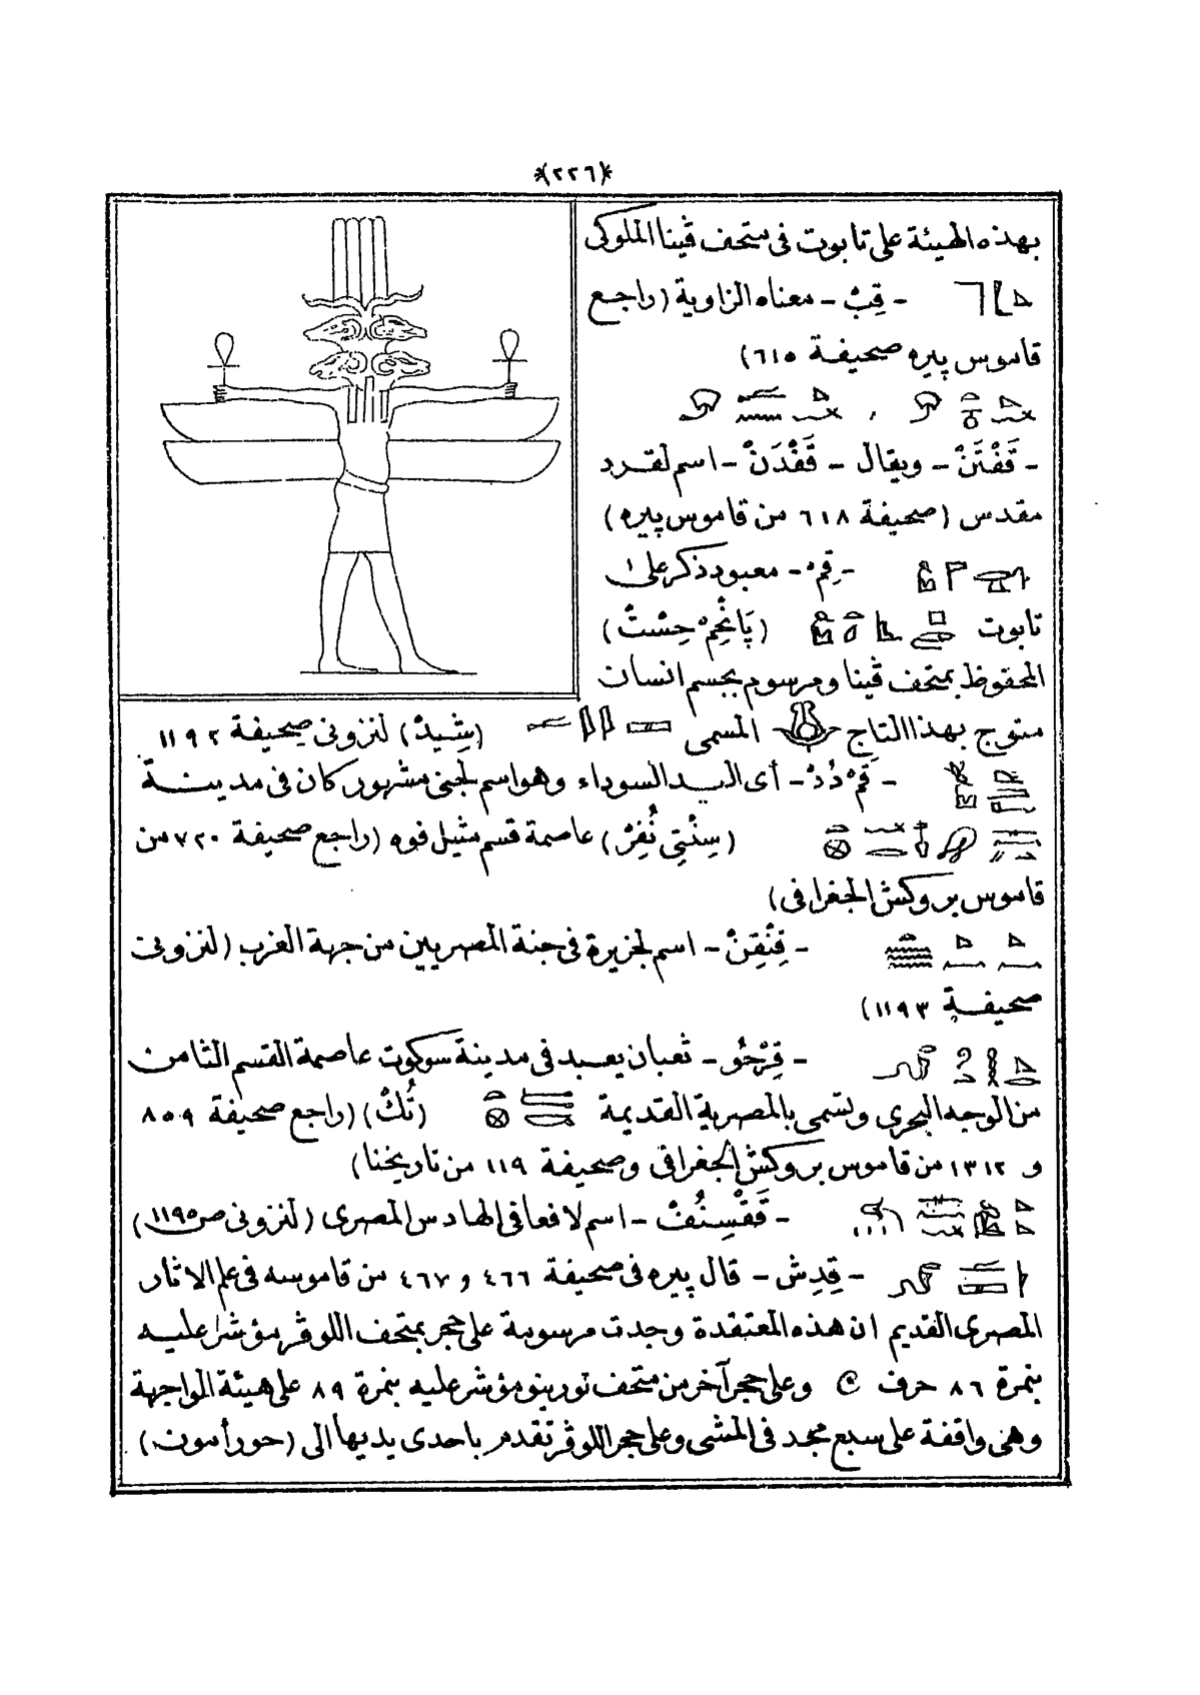 *(٢٢٦)*
بهذه الهيئة على تابوت فى متحف ڤينا الملوكى
- قِبْ - معناه الزاوية (راجع
قاموس پيره صحيفة ٦١٥)
،
- قَفْتَنْ - ويقال - قَفْدَنْ - اسم لقرد
مقدس (صحيفة ٦١٨ من قاموس پيره)
- قِمْ - معبود ذكر على
تابوت (پَانْخِمْ حِسْتْ)
المحفوظ بمتحف ڤينا ومرسوم بجسم انسان
متوج بهذا التاج المسمى (شِيدْ) لنزونى صحيفة ١١٩٢
- قَمْ دُدْ - أى اليد السوداء وهو اسم لجنى مشهور كان فى مدينة
(سِنْتِى نُفِرْ) عاصمة قسم مثيل فوه (راجع صحيفة ٧٢٠ من
قاموس بروكش الجغرافى)
- قِنْقِنْ - اسم لجزيرة فى جنة المصريين من جهة الغرب (لنزونى
صحيفة ١١٩٣)
- قِرْحُو - ثعبان يعبد فى مدينة سوكوت عاصمة القسم الثامن
من الوجه البحرى وتسمى بالمصرية القديمة (تُكْ) (راجع صحيفة ٨٥٩
و ١٣١٢ من قاموس بروكش الجغرافى وصحيفة ١١٩ من تاريخنا)
- قَقْسِنُفْ - اسم لافعا فى الهادس المصرى (لنزونى ص ١١٩٥)
- قِدِش - قال پيره فى صحيفة ٤٦٦ و ٤٦٧ من قاموسه فى علم الاثار
المصرى القديم ان هذه المعتقدة وجدت مرسومة على حجر بمتحف اللوڤر مؤشر عليه
بنمرة ٨٦ حرف C وعلى حجر آخر من متحف تورينو مؤشر عليه بنمرة ٨٩ على هيئة المواجهة
وهى واقفة على سبع مجد فى المشى وعلى حجر اللوڤر تقدم باحدى يديها الى (حور أمون)